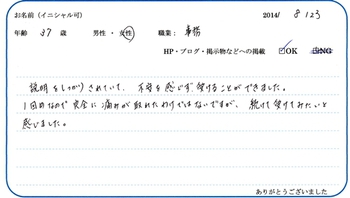 お名前（イニシャル可） 2014/ 8 / 23
年齢 37 歳 男性・女性 職業： 事務
HP・ブログ・掲示物などへの掲載 OK NG
説明をしっかりされていて、不安を感じず受けることができました。
1回目なので完全に痛みが取れたわけではないですが、続けて受けてみたいと
感じました。
ありがとうございました